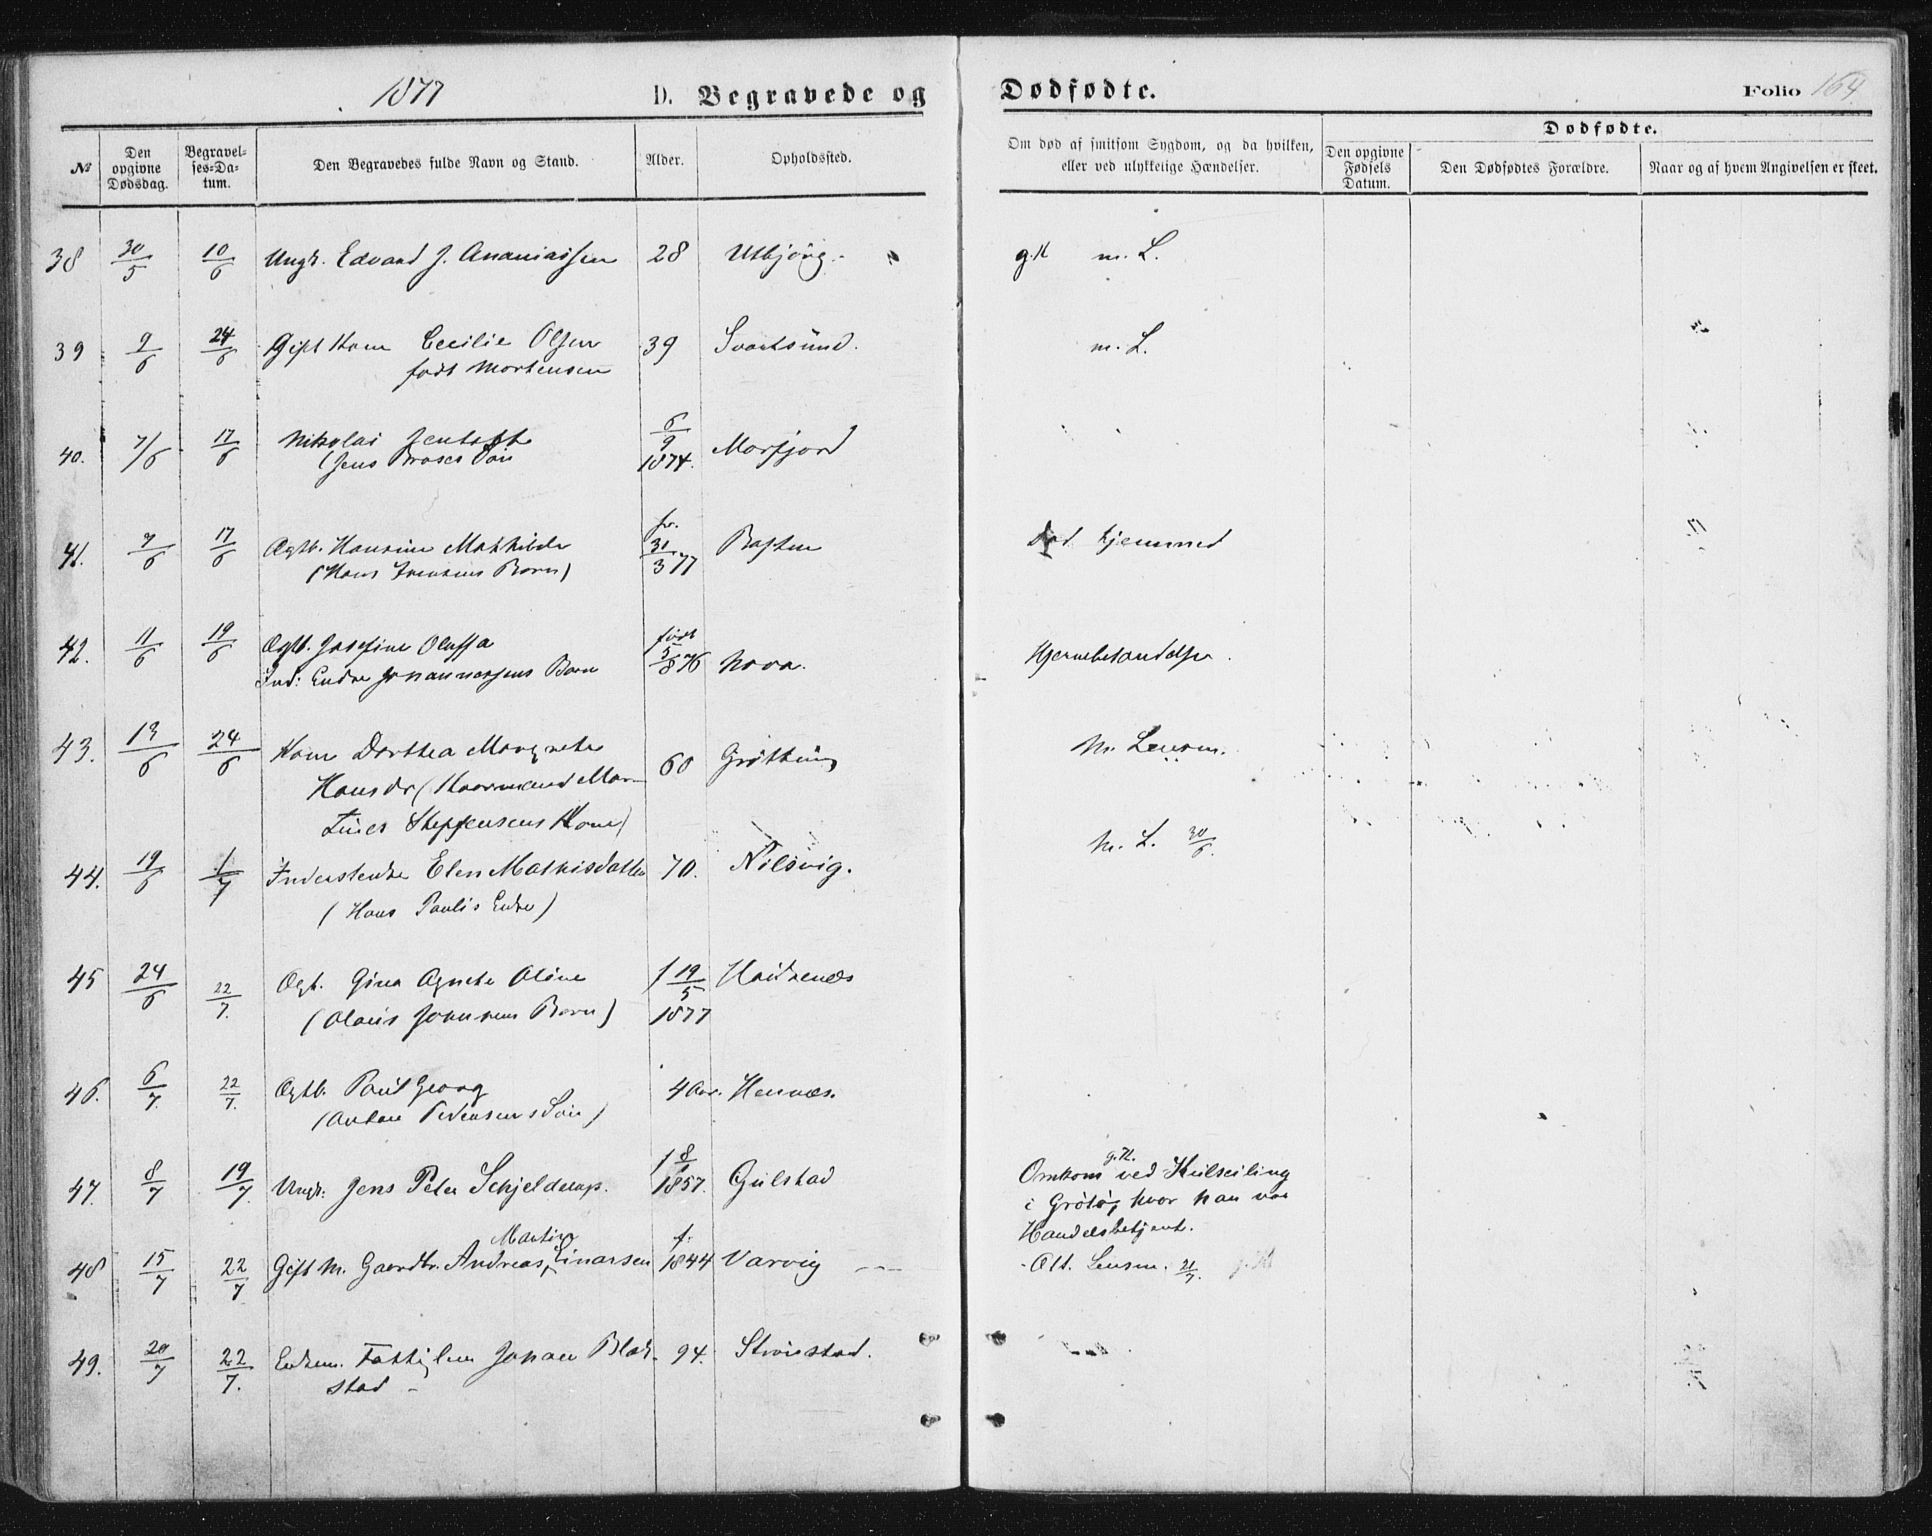 1877 D. Begravede og Dødfødte. Folio 164
№ Den opgivne Dødsdag. Begravelses-Datum. Den Begravedes fulde Navn og Stand. Alder. Opholdssted. Om død af smitsom Sygdom, og da hvilken, eller ved ulykkelige Hændelser. Dødfødte. Den opgivne Fødsels Datum. Den Dødfødtes Forældre. Naar og af hvem Angivelsen er skeet.
38 30/5 10/6 Ungk. Edvard J. Ananiassen 28 Utbjørg. m. L.
39 9/6 24/6 Gift Kone Cecilie Olsen 39 Svartsund. m. L.
født Mortensen
40. 7/6 17/6 Nikolai Jentoft 6/9 1874. Morfjord
(Jens Søn
41. 7/6 17/6 Ægtb. Hansine Mathilde 31/3 77 Død hjemme
(Hans Børn)
42. 11/6 19/6 Ægtb. Josefine Oluffa født 5/8 76
Ind: Endre Johannessens Barn
43. 13/6 24/6 Kone Dorthea Margrete 60 Grøtting M. Lensm.
Hansdr (Kaarmand Mar-
tines Steffensens Kone)
44. 19/6 1/7 Inderstenke Elen Mathisdatter 70. Nilsvig. M. L. 30/6.
(Hans Paulis Enke)
45 24/6 22/7. Ægt. Gina Agnete Oline f 19/5 1877
(Olaus Johnsens Barn)
46. 6/7. 22/7. Ægtb. Paul Georg 4 Aar. Hennæs.
(Anton Pedersens Søn)
47. 8/7 19/7. Ungk: Jens Peter Schjelderup. f 8/ 1857. Gulstad Omkom ved Kulseiling
i Grøtø, hvor han var
Handelsbetjent.
48 15/7 22/7 Gift M. Gaardbr. Andreas Martin Einarsen f: 1844 Varvig Att. Lensm. 21/7.
49. 20/7 22/7. Enkem. Fattiglem Johan Blok- 94. Streistad.
stad